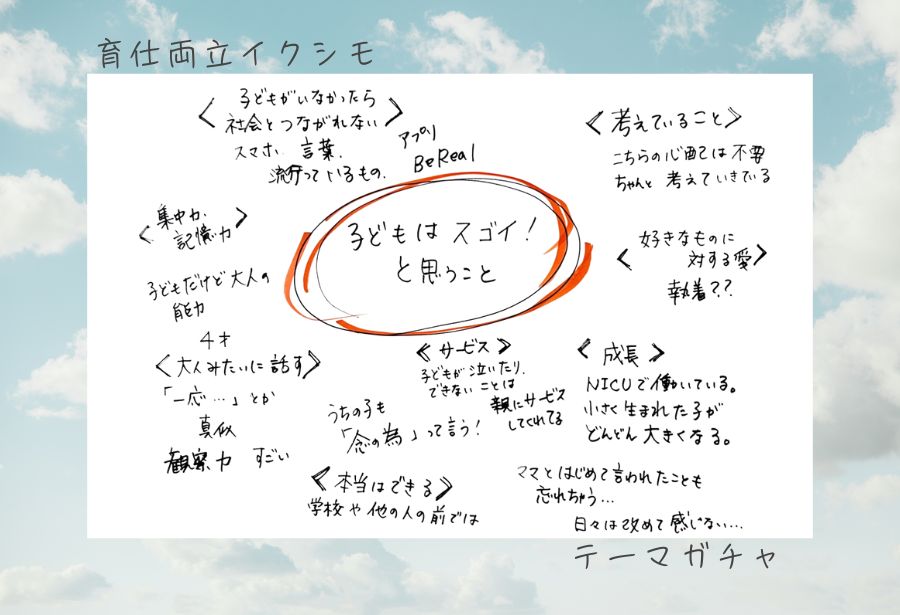 育仕両立イクシモ
<子どもがいなかったら
社会とつながれない>
スマホ、言葉、
流行っているもの、
アプリ
BeReal
<考えていること>
こちらの心配は不要
ちゃんと考えていきている
<集中力、
記憶力>
子どもだけど大人の
能力
子どもはスゴイ!
と思うこと
<好きなものに
対する愛>
執着??
4才
<大人みたいに話す>
「一応…」とか
真似
観察力 すごい
<サービス>
子どもが泣いたり、
できないことは
親にサービス
してくれてる
うちの子も
「念の為」って言う!
<成長>
NICUで働いている。
小さく生まれた子が
どんどん大きくなる。
<本当はできる>
学校や他の人の前では
ママとはじめて言われたことも
忘れちゃう…
日々は改めて感じない…
テーマガチャ